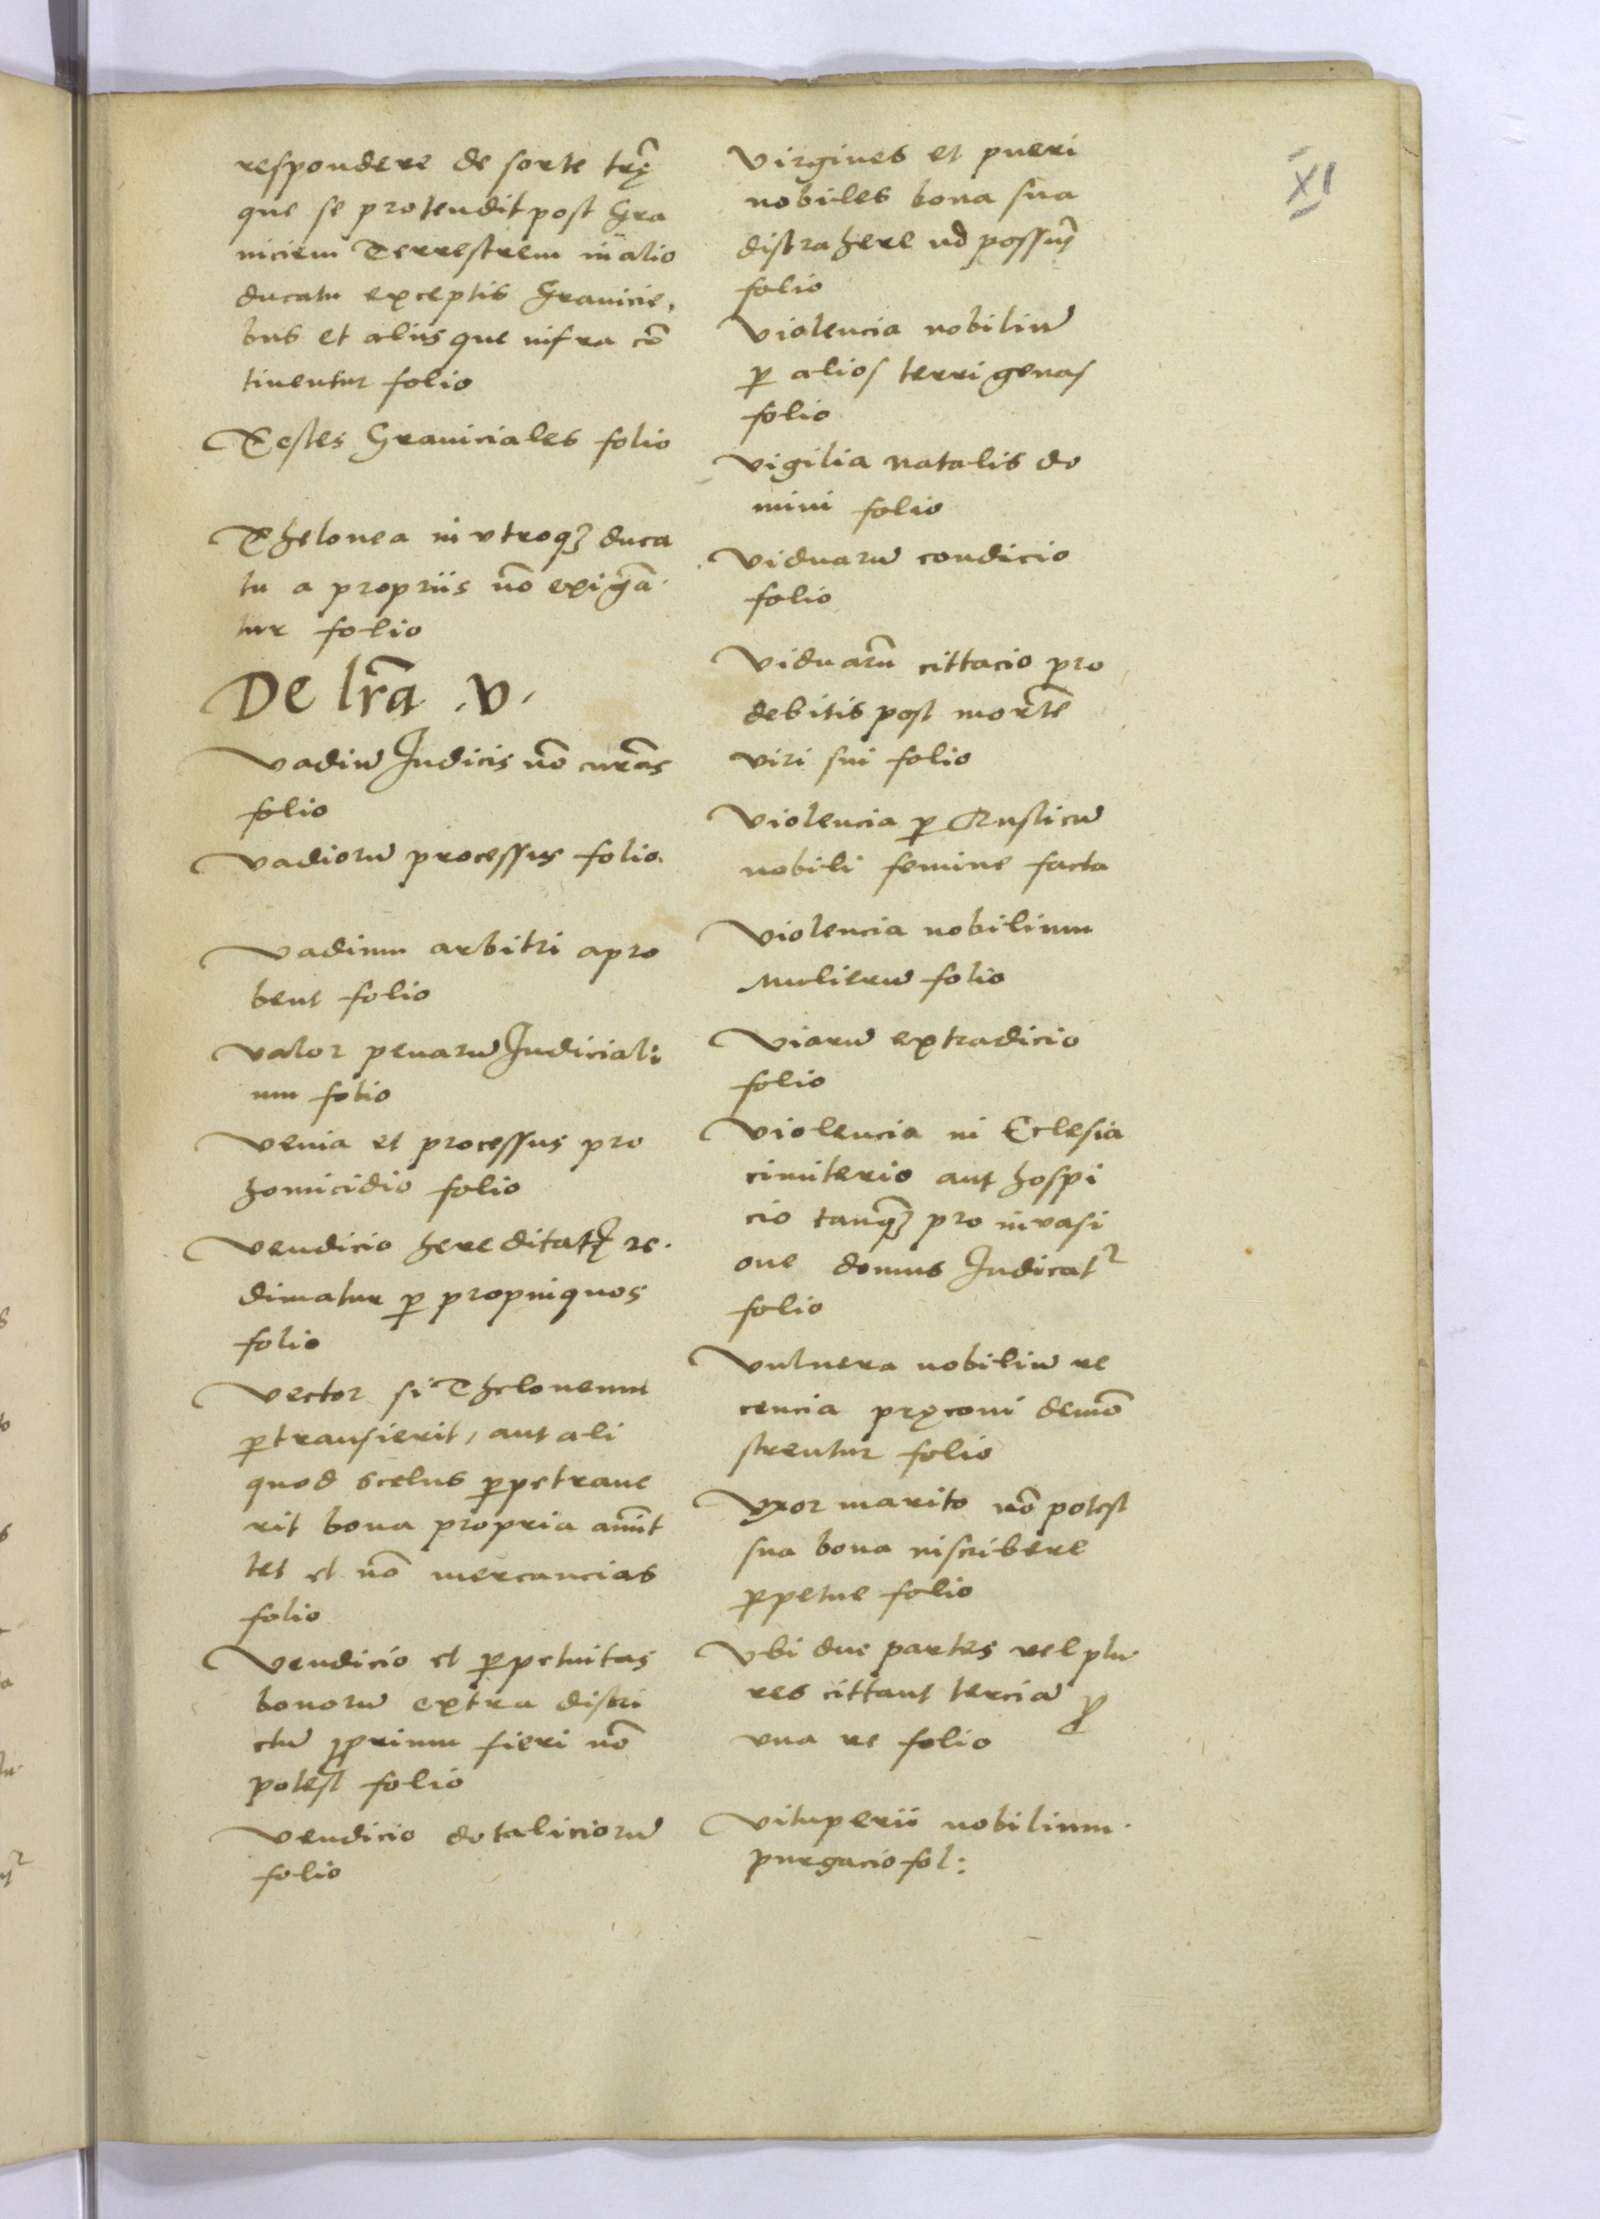 XI
respondere de sorte trę̃
que se protendit post Gra
niciem Terrestrem in alio
ducatu exceptis Granicie,
bus et aliis que infra cõ
tinentur folio
Testes Graniciales folio
Thelonea in vtroqꝫ duca
tu a propriis nõ exigã
tur folio
De lr̃a .v.
Vadiũ Judicis nõ curãs
folio
Vadiorũ processus folio
Vadium arbitri apro
bent folio
Valor penarũ Judiciali
um folio
Venia et processus pro
homicidio folio
Vendicio hereditatꝭ re.
dimatur ꝑ propinquos
folio
Vector si Theloneum
ꝑtransierit, aut ali
quod scelus ꝑpetraue
rit bona propria amit
tet et nõ mercancias
folio
Vendicio et ꝑpetuitas
bonorũ extra distri
ctũ ꝓprium fieri nõ
potest folio
Vendicio dotaliciorũ
folio
Virgines et pueri
nobiles bona sua
distrahere nõ possũt
folio
Violencia nobiliũ
ꝑ alios terrigenas
folio
Vigilia natalis do
mini folio
Viduarũ condicio
folio
Viduarũ cittacio pro
debitis post mortẽ
viri sui folio
Violencia ꝑ Rusticũ
nobili femine facta
Violencia nobilium
Mulierũ folio
Viarũ extradicio
folio
Violencia in Eclesia
cimiterio aut hospi
cio tanqꝫ pro invasi
one domus Judicat᷑
folio
Vulnera nobiliũ re
cencia pręconi demõ
strentur folio
Vxor marito nõ potest
sua bona inscribere
ꝑpetue folio
Vbi due partes vel plu
res cittant terciã ꝓ
vna re folio
Vituperii nobilium.
purgacio fol: